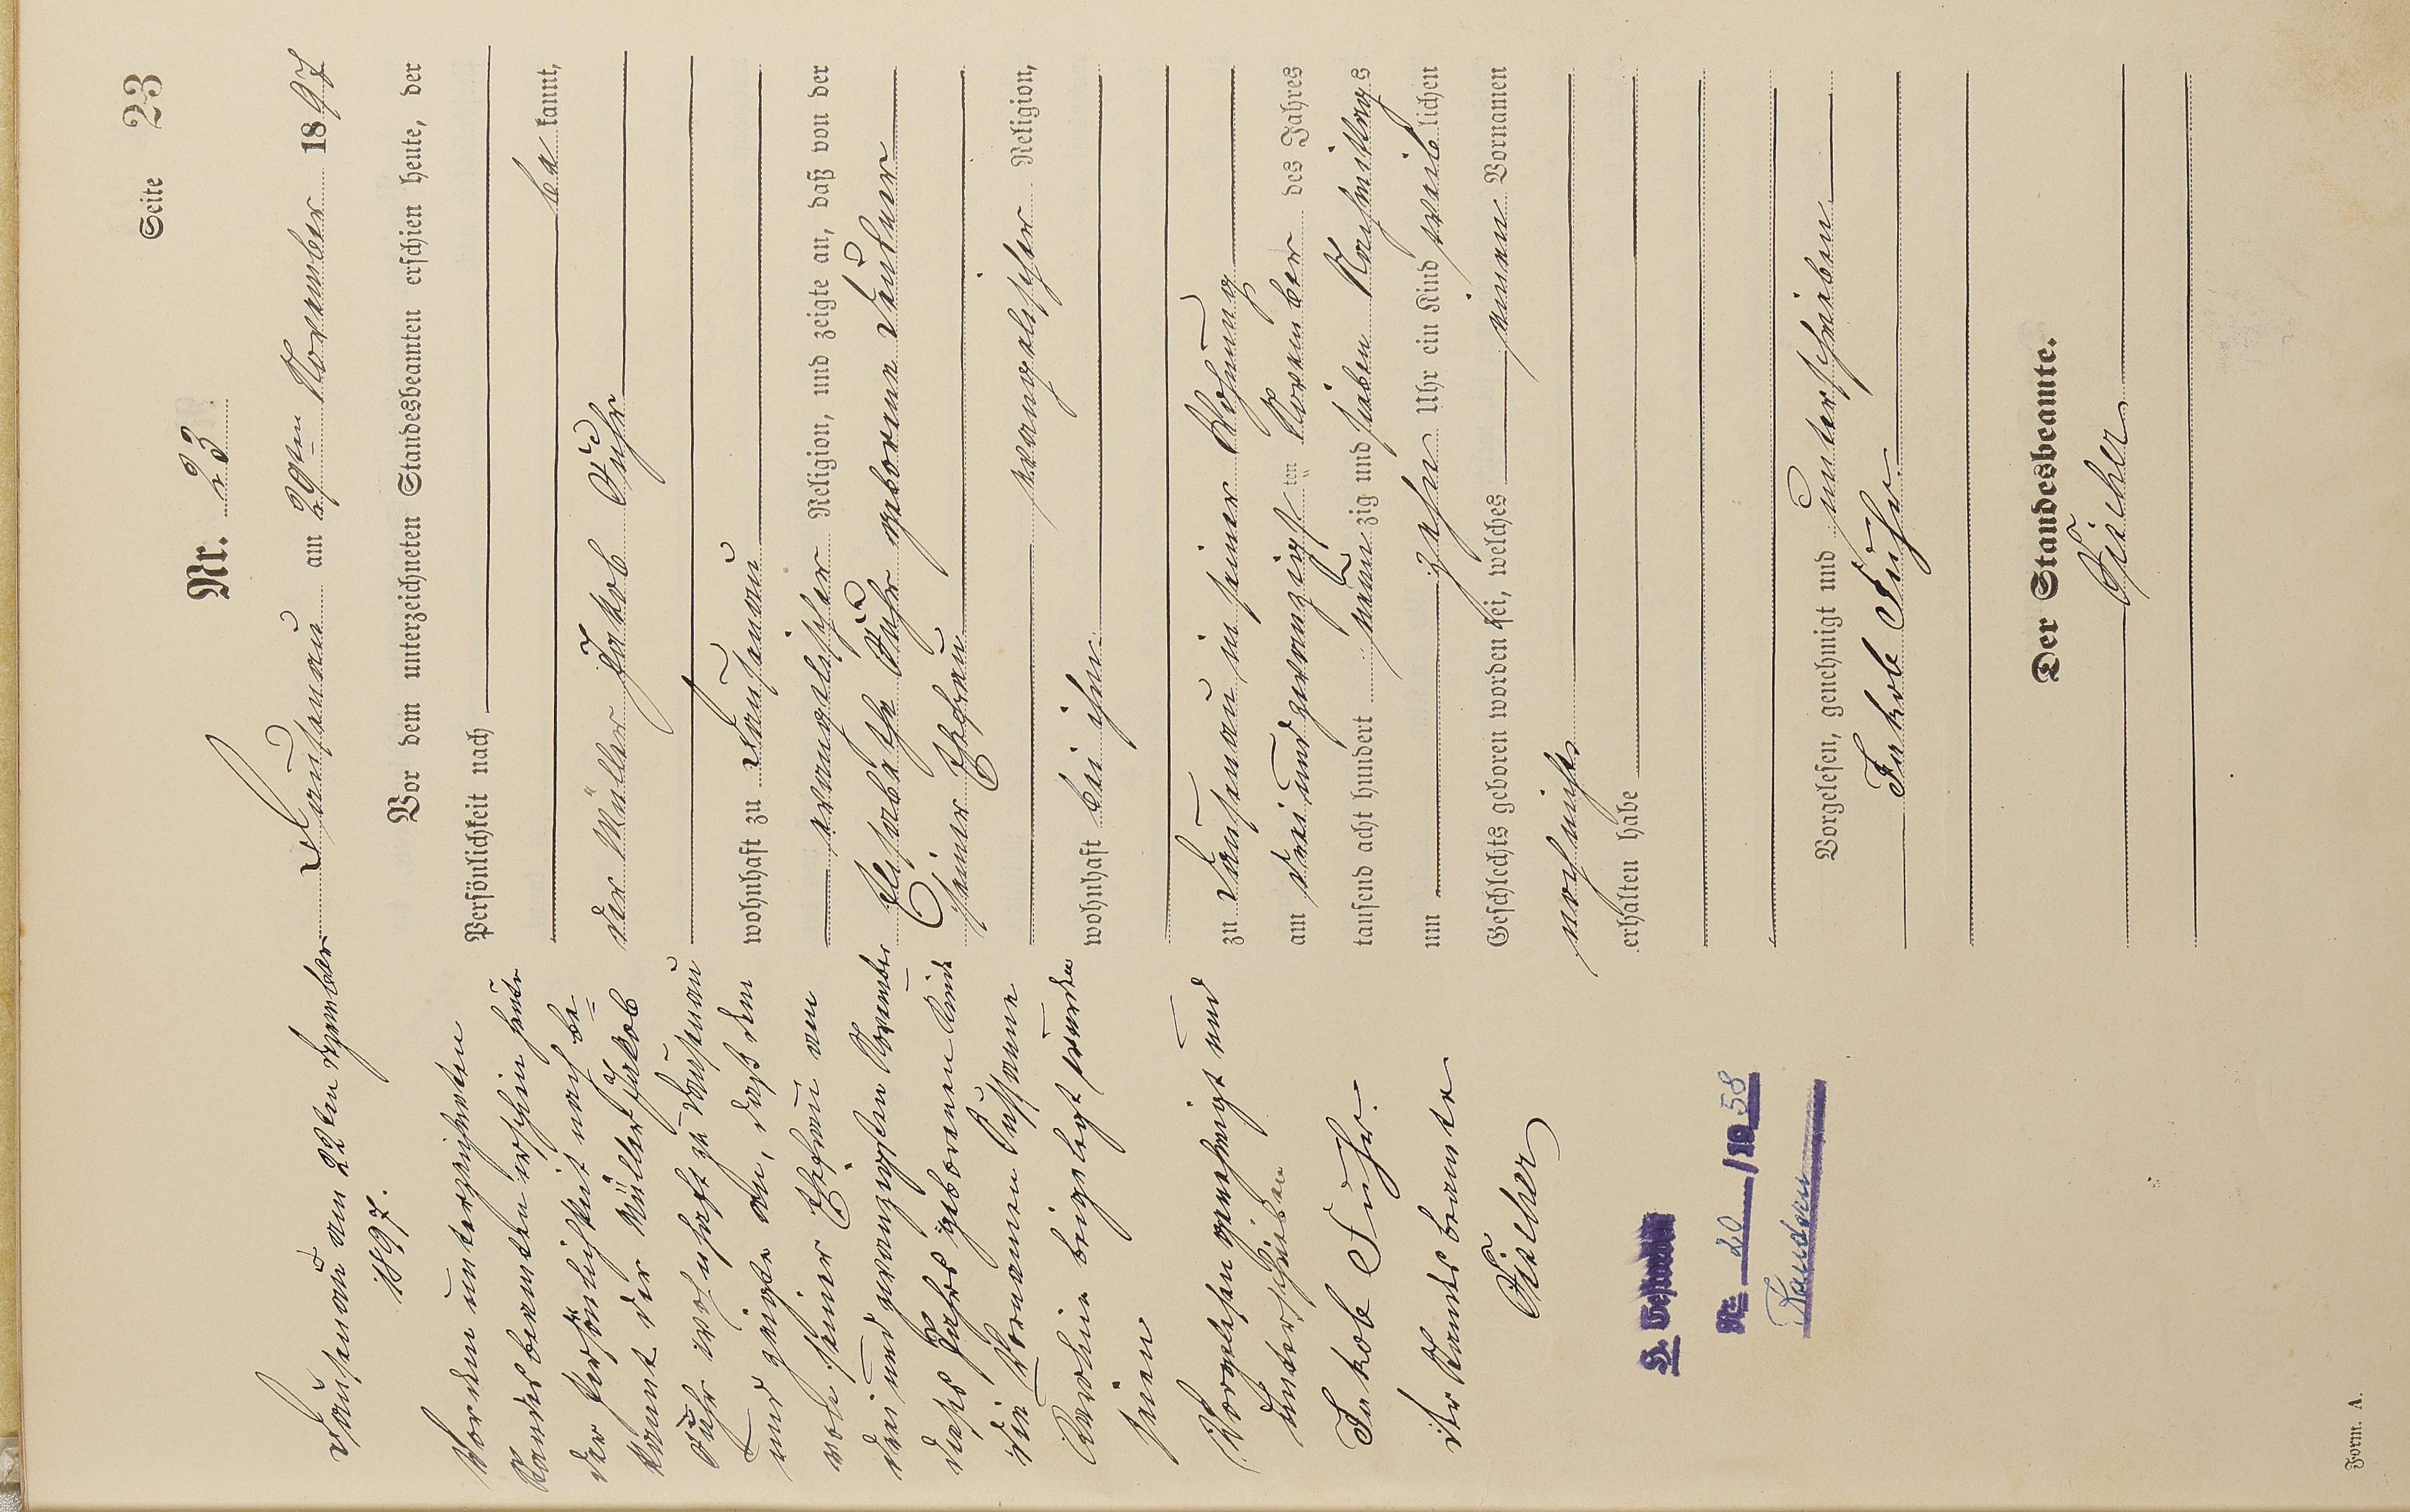 Seite 23
Nr. 23
Dausenau am 29ten November 1897
Vor dem unterzeichneten Standesbeamten erschien heute, der
Persönlichkeit nach
be kannt,
der Müller Jakob Fuhr
wohnhaft zu Dausenau
evangelischer Religion, und zeigte an, daß von der
Elisabethe Fuhr geborenen
seiner Ehefrau
evangelischer Religion,
wohnhaft bei ihm
zu Dausenau in seiner Wohnung
am drei und zwanzigsten November des Jahres
tausend acht hundert neun zig und sieben Nachmittags
um zehn Uhr ein Kind weiblichen
Geschlechts geboren worden sei, welches einen Vornamen
noch nicht
erhalten habe
Vorgelesen, genehmigt und unterschrieben
Jakob Fuhr.
Der Standesbeamte.
Dausenau am 22ten Dezember
1897.
Vor dem unterzeichneten
Standesbeamten erschien heute
der Persönlichkeit nach be=
kannt der Müller Jakob
Fuhr wohnhaft zu Dausenau
und zeigte an, daß dem
von seiner Ehefrau am
drei und zwanzigsten November
dieses Jahres geborenen Kinde
die Vornamen Susanna
beigelegt worden
seien
Vorgelesen genehmigt und
unterschrieben
Jakob Fuhr.
Der Standesbeamte
Nr. 20/1958
Form. A.